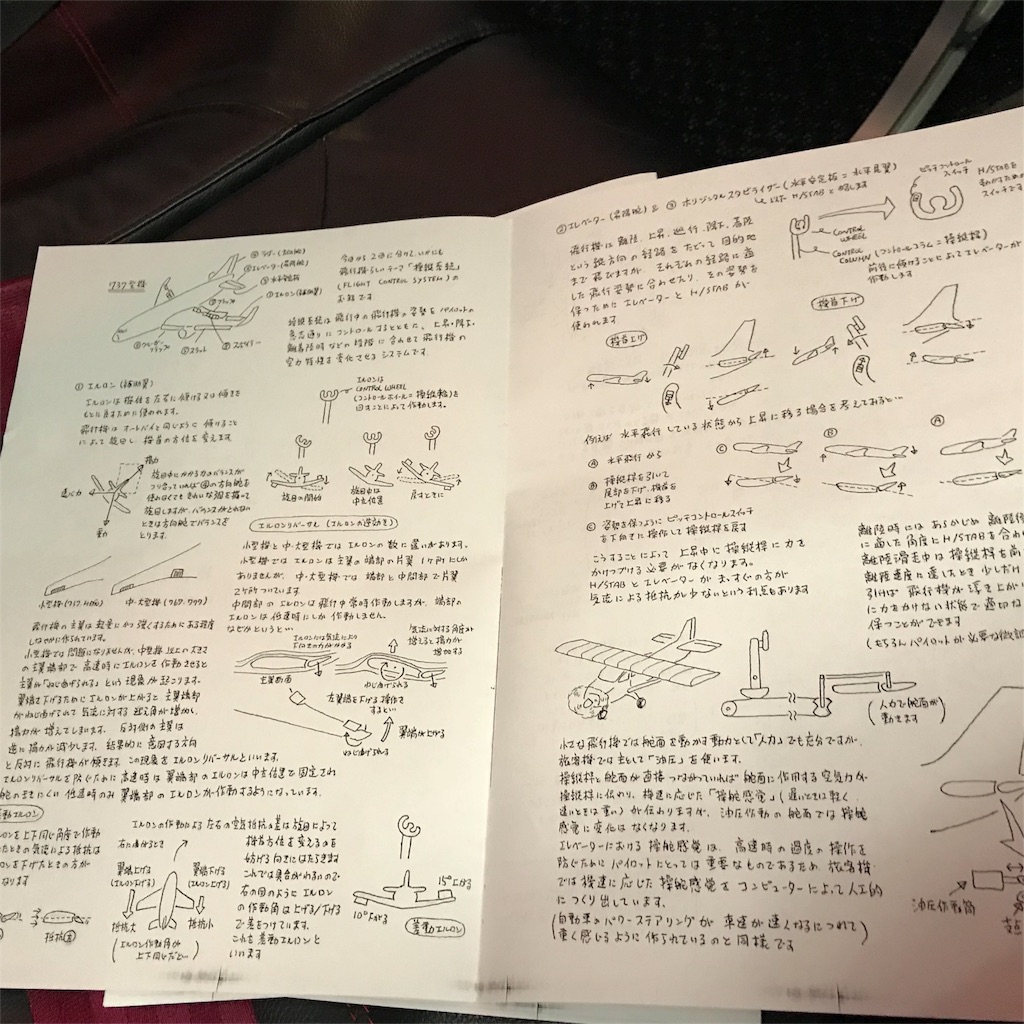 737型機
④ラダー(方向舵)
②エレベーター(昇降舵)
③水平安定板
①エルロン(補助翼)
⑤フラップ
⑥スラット
今回から2回に分けて、いかにも
飛行機らしいテーマ「操縦系統」
(FLIGHT CONTROL SYSTEM)の
お話です
操縦系統は飛行中の飛行機の姿勢をパイロットの
意志通りにコントロールするとともに、上昇・降下・
離着陸時などの段階に合わせて飛行機の
空力特性を変化させるシステムです。
① エルロン(補助翼)
エルロンは機体を左右に傾ける又は傾きを
もとに戻すために使われます。
飛行機はオートバイと同じように傾けること
によって旋回し機首の方位を変えます
エルロンは
CONTROL WHEEL
(コントロールホイール=操縦輪)を
回すことによって作動します。
揚力
遠心力
重力
旋回中にかかる力のバランスが
つり合っていれば④の方向舵を
使わなくてもきれいな弧を描いて
旋回しますが、バランスがとれない
ときは方向舵でバランスを
とります。
旋回の開始
旋回中は
中立位置
戻すときに
エルロンリバーサル(エルロンの逆効き)
小型機と中・大型機ではエルロンの数に違いがあります。
小型機ではエルロンは主翼の端部の片翼1ヶ所にしか
ありませんが、中・大型機では端部と中間部で片翼
2ヶ所ついています。
中間部のエルロンは飛行中常時作動しますが、端部の
エルロンは低速時にしか作動しません。
なぜかというと…
小型機(717,737)
中・大型機(767・777)
飛行機の主翼は軽量にかつ強くするためにある程度
しなやかに作られています。
小型機では問題になりませんが、中型機以上の大きさ
の主翼端部で高速時にエルロンを作動させると
主翼が「ねじ曲げられる」という現象が起こります。
翼端を下げるためにエルロンが上がると、主翼端部
がねじ曲げられて気流に対する迎え角が増加し、
揚力が増えてしまいます。反対側の主翼は
逆に揚力が減少します。結果的に意図する方向
と反対に飛行機が傾きます。この現象をエルロンリバーサルといいます。
エルロンリバーサルを防ぐために高速時は翼端部のエルロンは中立位置で固定され
舵のききにくい低速時のみ翼端部のエルロンが作動するようになっています。
エルロンには気流により
下向きの力がかかる
気流に対する角度が
増えると揚力が
増加する
主翼断面
ねじ曲げられる
左翼端を下げる操作を
すると…
翼端が上がる
ねじ曲げられる
差動エルロン
ロンを上下同じ角度で作動
たときの気流による抵抗は
ロンを下げたときの方が
なります
抵抗大
エルロンの作動による左右の空気抵抗の差は旋回によって
機首方位を変えるのを
妨げる向きにはたらきます
これでは具合がわるいので
右の図のようにエルロン
の作動角は上げる/下げる
で差をつけています。
これを差動エルロンと
いいます
右に曲がるとき
翼端上げる
(エルロン下げる)
翼端下げる
(エルロン上げる)
抵抗大
抵抗小
(エルロン作動角が
上下同じだと…)
15°上がる
10°下がる
差動エルロン
②エレベーター(昇降舵)& ③ホリゾンタルスタビライザー(水平安定板=水平尾翼)
以下 H/STABと略します
飛行機は離陸、上昇、巡行、降下、着陸
という縦方向の経路をたどって目的地
まで飛びますが、それぞれの経路に適
した飛行姿勢に合わせたり、その姿勢を
保つためにエレベーターとH/STABが
使われます
ピッチコントロール
スイッチ
H/STABを
動かすための
スイッチです
CONTROL
WHEEL
CONTROL
COLUMN(コントロールコラム=操縦桿)
前後に傾けることによってエレベーターが
作動します
機首上げ
機首下げ
例えば水平飛行している状態から上昇に移る場合を考えてみると…
Ⓐ 水平飛行から
Ⓑ 操縦桿を引いて
尾部を下げ、機首を
上げて上昇に移る
Ⓒ 姿勢を保つようにピッチコントロールスイッチ
を下向きに操作して操縦桿を戻す
こうすることによって上昇中に操縦桿に力を
かけつづける必要がなくなります。
H/STABとエレベーターがまっすぐの方が
気流による抵抗が少ないという利点もあります
Ⓒ
Ⓑ
Ⓐ
離陸時にはあらかじめ離陸
に適した角度にH/STABを合わ
離陸滑走中は操縦桿を
離陸速度に達したとき少しだけ
引けば飛行機が浮き上が
に力をかけない状態で適切な
保つことができます
(もちろんパイロットが必要な微調
(人力で舵面が
動きます)
小さな飛行機では舵面を動かす動力として「人力」でも充分ですが、
旅客機では主として「油圧」を使います。
操縦桿と舵面が直接つながっていれば舵面に作用する空気力が
操縦桿に伝わり、機速に応じた「操舵感覚」(遅いときは軽く
速いときは重い)が伝わりますが、油圧作動の舵面では操舵
感覚に変化はなくなります。
エレベーターにおける操舵感覚は、高速時の過度の操作を
防ぐためにパイロットにとっては重要なものであるため、旅客機
では機速に応じた操舵感覚をコンピューターによって人工的
につくり出しています。
(自動車のパワーステアリングが車速が速くなるにつれて
重く感じるように作られているのと同様です)
油圧作動筒
支点